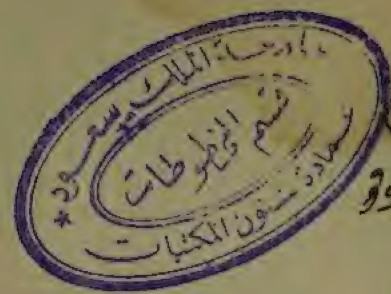 جامعة الملك سعود
قسم المخطوطات
عمادة شئون المكتبات
*